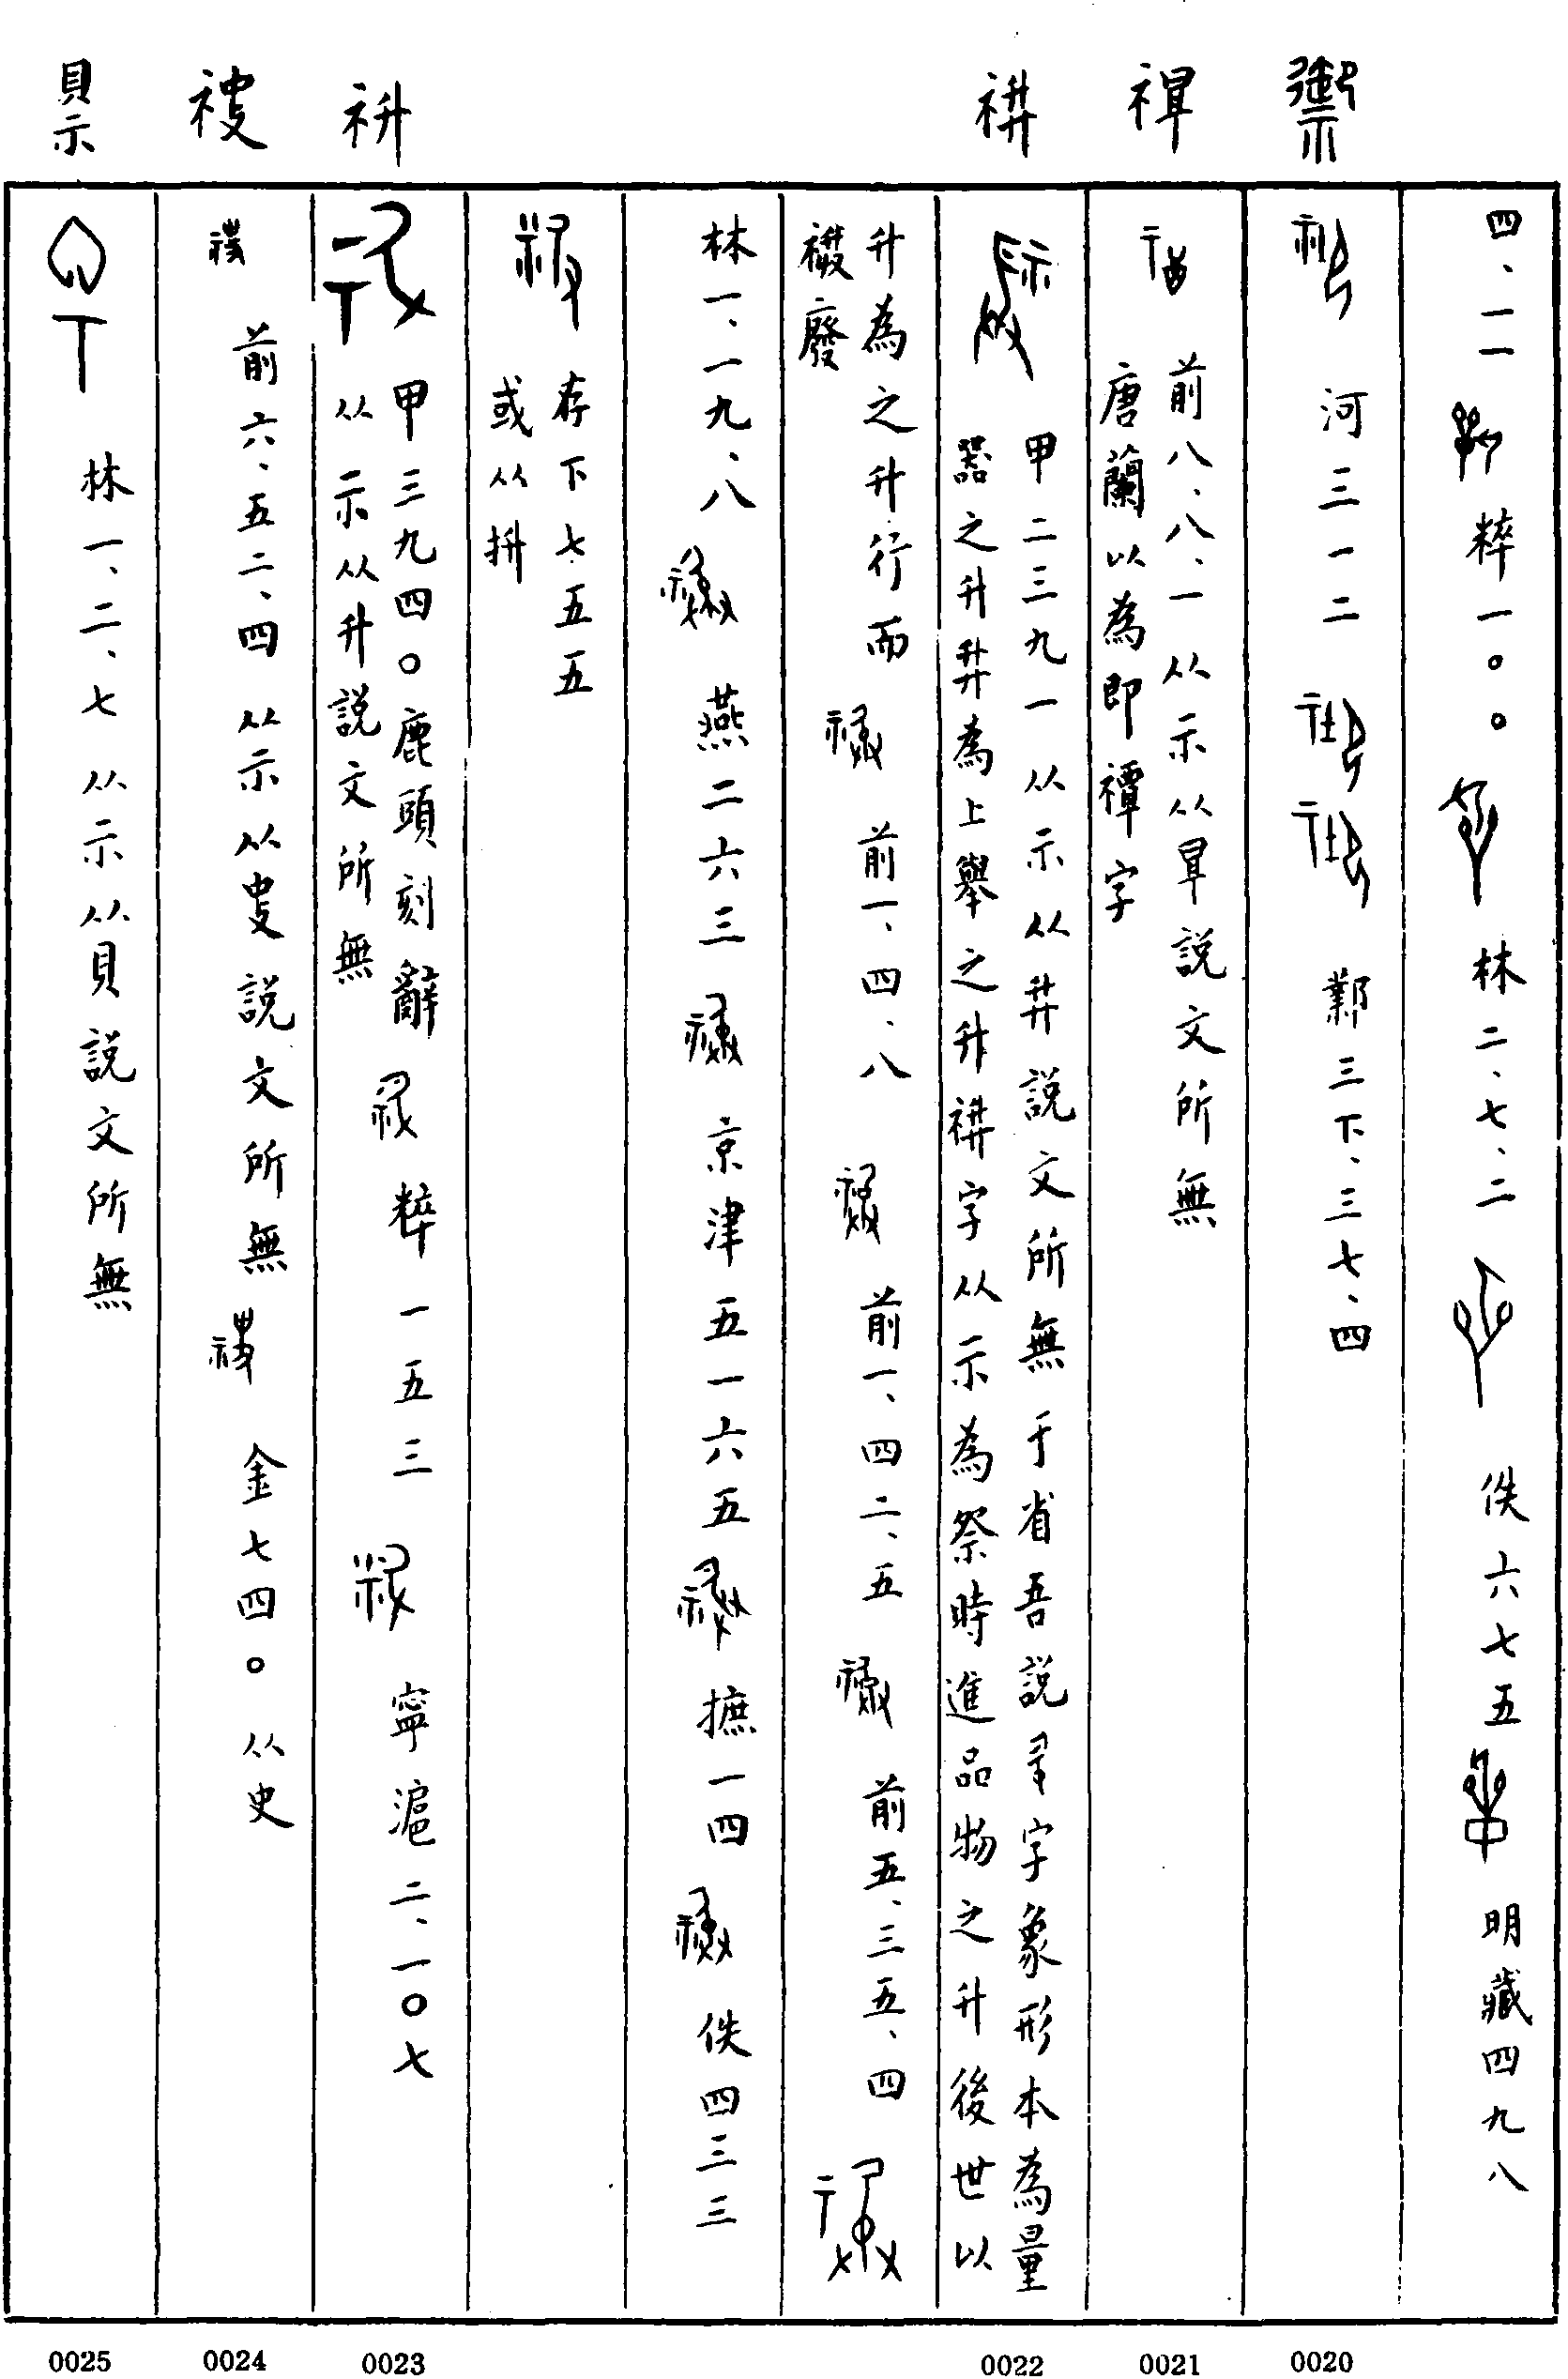 禦
禪
𥛬
四、一一 粹一〇〇 林二、七、二 佚六七五 明藏四九八
河三一二 鄴三下、三七、四
前八、八、一 从示从𠦝説文所無
唐蘭以為即禫字
甲二三九一 从示从𦫵説文所無于省吾説字象形本為量
器之升𦫵為上舉之升字从示為祭時進品物之升後世以
升為之升行而
廢
前一、四、八 前一、四二、五 前五、三五、四
林一、一九、八 燕二六三 京津五一六五 摭一四 佚四三三
存下七五五
或从拼
甲三九四〇鹿頭刻辭 粹一五三 寧滬二、一〇七
从示从升説文所無
前六、五二、四 从示从㕜説文所無 金七四〇 从史
林一、二、七 从示从貝説文所無
0020
0021
0022
0023
0024
0025